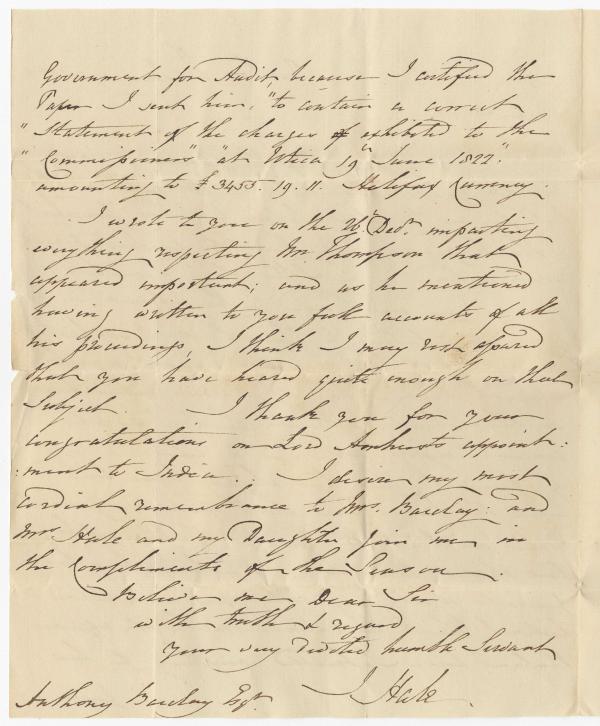 Government for Audit, because I certified the
Paper I sent him, "to contain a correct
"Statement of the charges exhibited to the
"Commissioners" "at Utica 19th June 1822".
amounting to £3455.19.11. Halifax Currency.
I wrote to you on the 26th Decr. imparting
everything respecting Mr Thompson that
appeared important; and as he mentioned
having written to you full accounts of all
his proceedings, I think I may rest assured
that you have heard quite enough on that
Subject. I thank you for your
congratulations on Lord Amhersts appoint:
:ment to India. I desire my most
cordial remembrance to Mrs. Barclay: and
Mrs Hale and my Daughter join me in
the Compliments of the Season.
Believe me Dear Sir
with truth & regard
your very devoted humble Servant
J Hale.
Anthony Barclay Esqr.